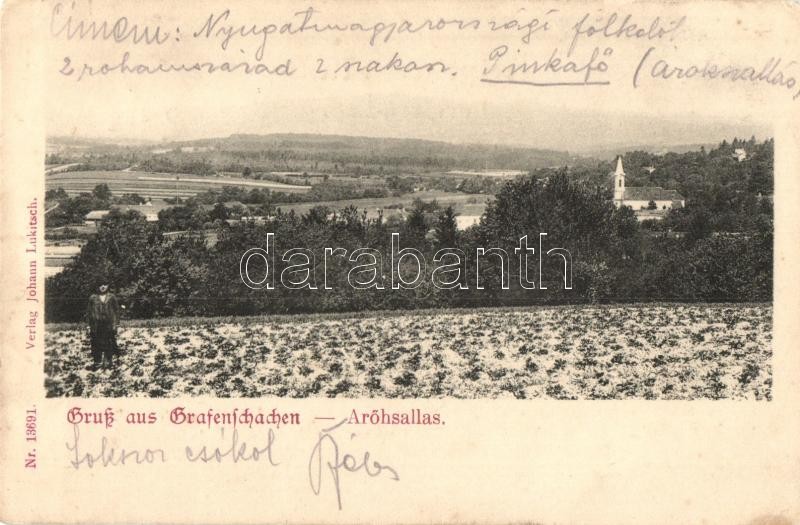 Címem: Nyugatmagyarországi fölkelőt
2 rohamszázad 2 szakasz. Pinkafő (
darabanth
Gruß aus Grafenschachen — Arőhsallas.
Sokszor csókol
Verlag Johann Lukitsch.
Nr. 13691.